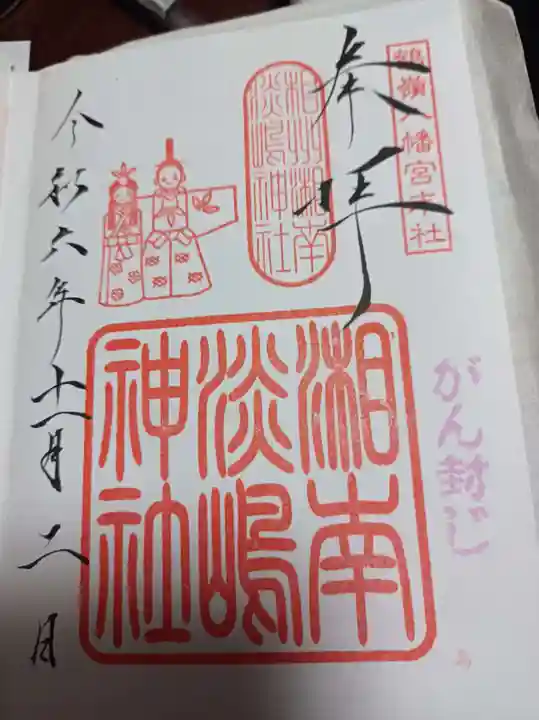 鶴嶺八幡宮末社
奉拝
相州湘南
淡嶋神社
がん封じ
湘南
淡嶋
神社
令和六年十一月二日